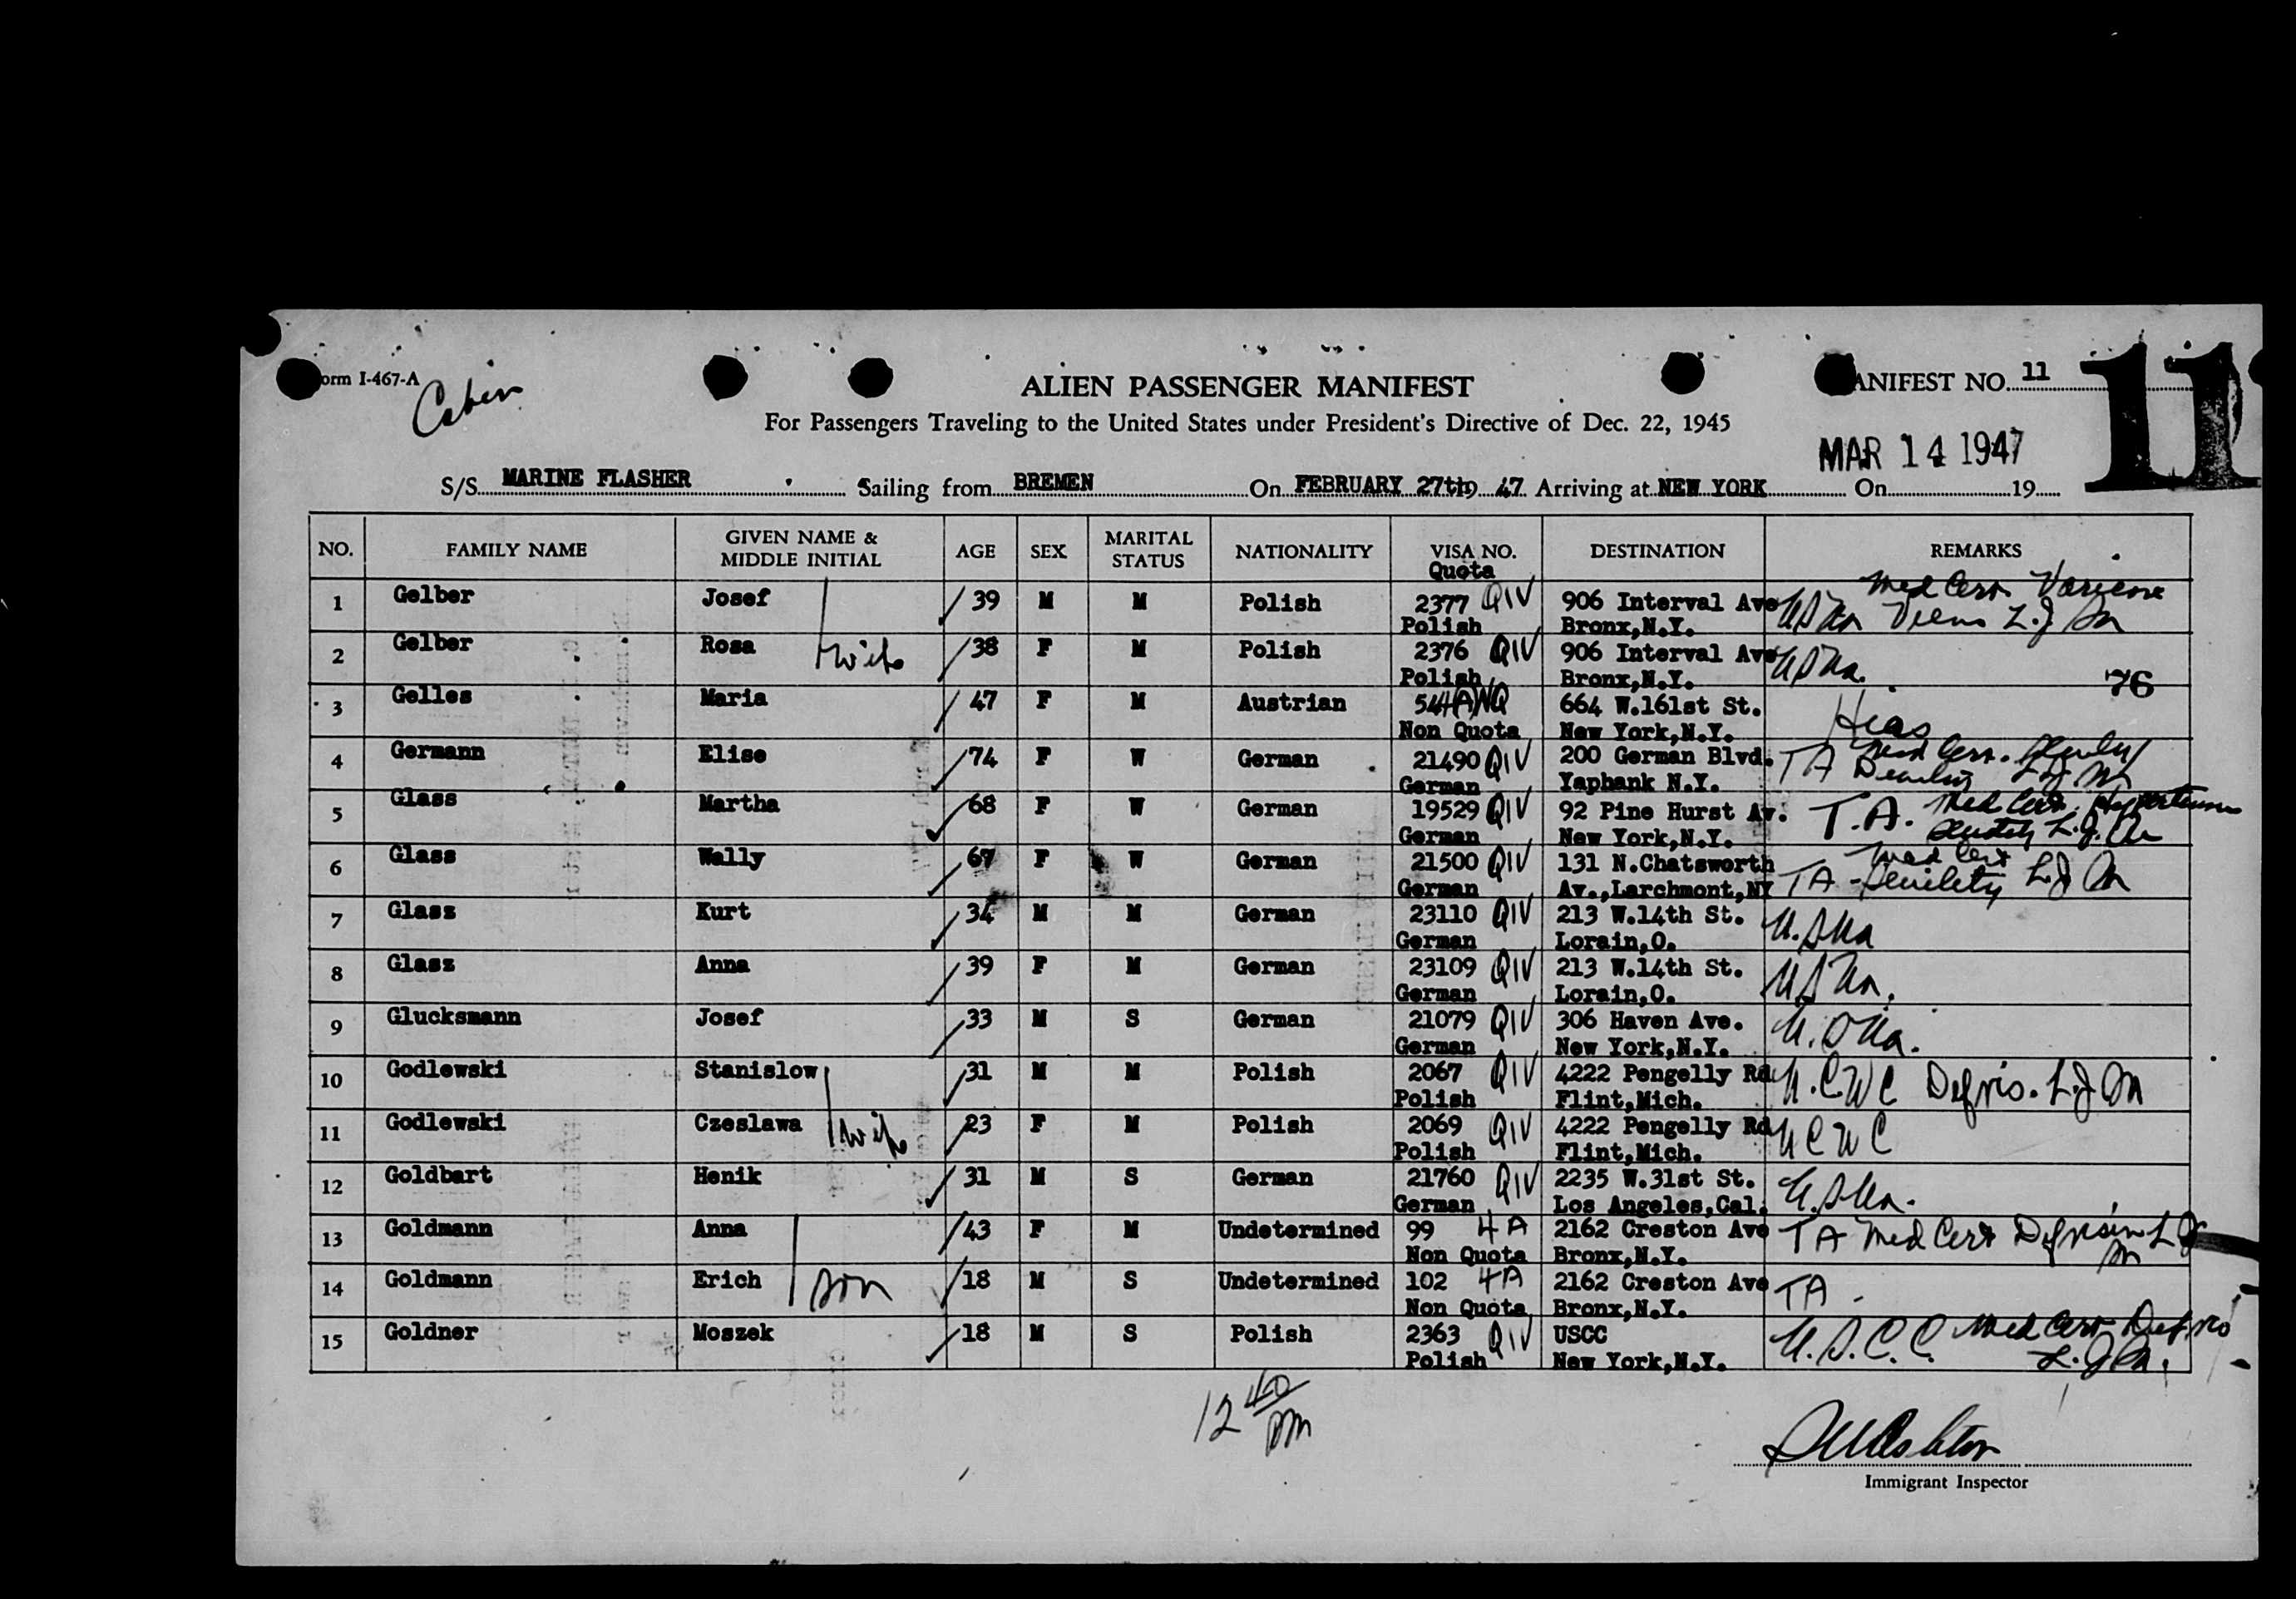 orm I-467-A
Cabin
ALIEN PASSENGER MANIFEST
ANIFEST NO. 11
11
For Passengers Traveling to the United States under President's Directive of Dec. 22, 1945
MAR 14 1947
S/S MARINE FLASHER Sailing from BREMEN On FEBRUARY 27th 47 Arriving at NEW YORK On 19
NO. FAMILY NAME GIVEN NAME & MIDDLE INITIAL AGE SEX MARITAL STATUS NATIONALITY VISA NO. DESTINATION REMARKS
Quota
1 Gelber Josef 39 M M Polish 2377 QIV 906 Interval Ave Med Cert Varicose
Polish Bronx,N.Y. Veins L.J.M
2 Gelber Rosa wife 38 F M Polish 2376 QIV 906 Interval Ave
Polish Bronx,N.Y. 76
3 Gelles Maria 47 F M Austrian 544ANQ 664 W.161st St.
Non Quota New York,N.Y. Hias
4 Germann Elise 74 F W German 21490 QIV 200 German Blvd. TA Med Cert.
German Yaphank N.Y.
5 Glass Martha 68 F W German 19529 QIV 92 Pine Hurst Av. T.A. Med Cert. Hypertension
German New York,N.Y.
6 Glass Wally 67 F W German 21500 QIV 131 N.Chatsworth Med Cert
German Av.,Larchmont,NY TA - Senility L.J.M
7 Glasz Kurt 34 M M German 23110 QIV 213 W.14th St.
German Lorain,O. U.S.Na
8 Glasz Anna 39 F M German 23109 QIV 213 W.14th St.
German Lorain,O. U.S.Na.
9 Glucksmann Josef 33 M S German 21079 QIV 306 Haven Ave.
German New York,N.Y. U.S.Na.
10 Godlewski Stanislow 31 M M Polish 2067 QIV 4222 Pengelly Rd N.C.W.C Def vis. L.J.M
Polish Flint,Mich.
11 Godlewski Czeslawa wife 23 F M Polish 2069 QIV 4222 Pengelly Rd N C W C
Polish Flint,Mich.
12 Goldbart Henik 31 M S German 21760 QIV 2235 W.31st St.
German Los Angeles,Cal. U.S.Na.
13 Goldmann Anna 43 F M Undetermined 99 4A 2162 Creston Ave TA Med Cert Def vision L J
Non Quota Bronx,N.Y. M
14 Goldmann Erich son 18 M S Undetermined 102 4A 2162 Creston Ave TA
Non Quota Bronx,N.Y.
15 Goldner Moszek 18 M S Polish 2363 QIV USCC U.S.C.C. Med Cert Def vis
Polish New York,N.Y. L.J.M.
12 40 pm
Immigrant Inspector